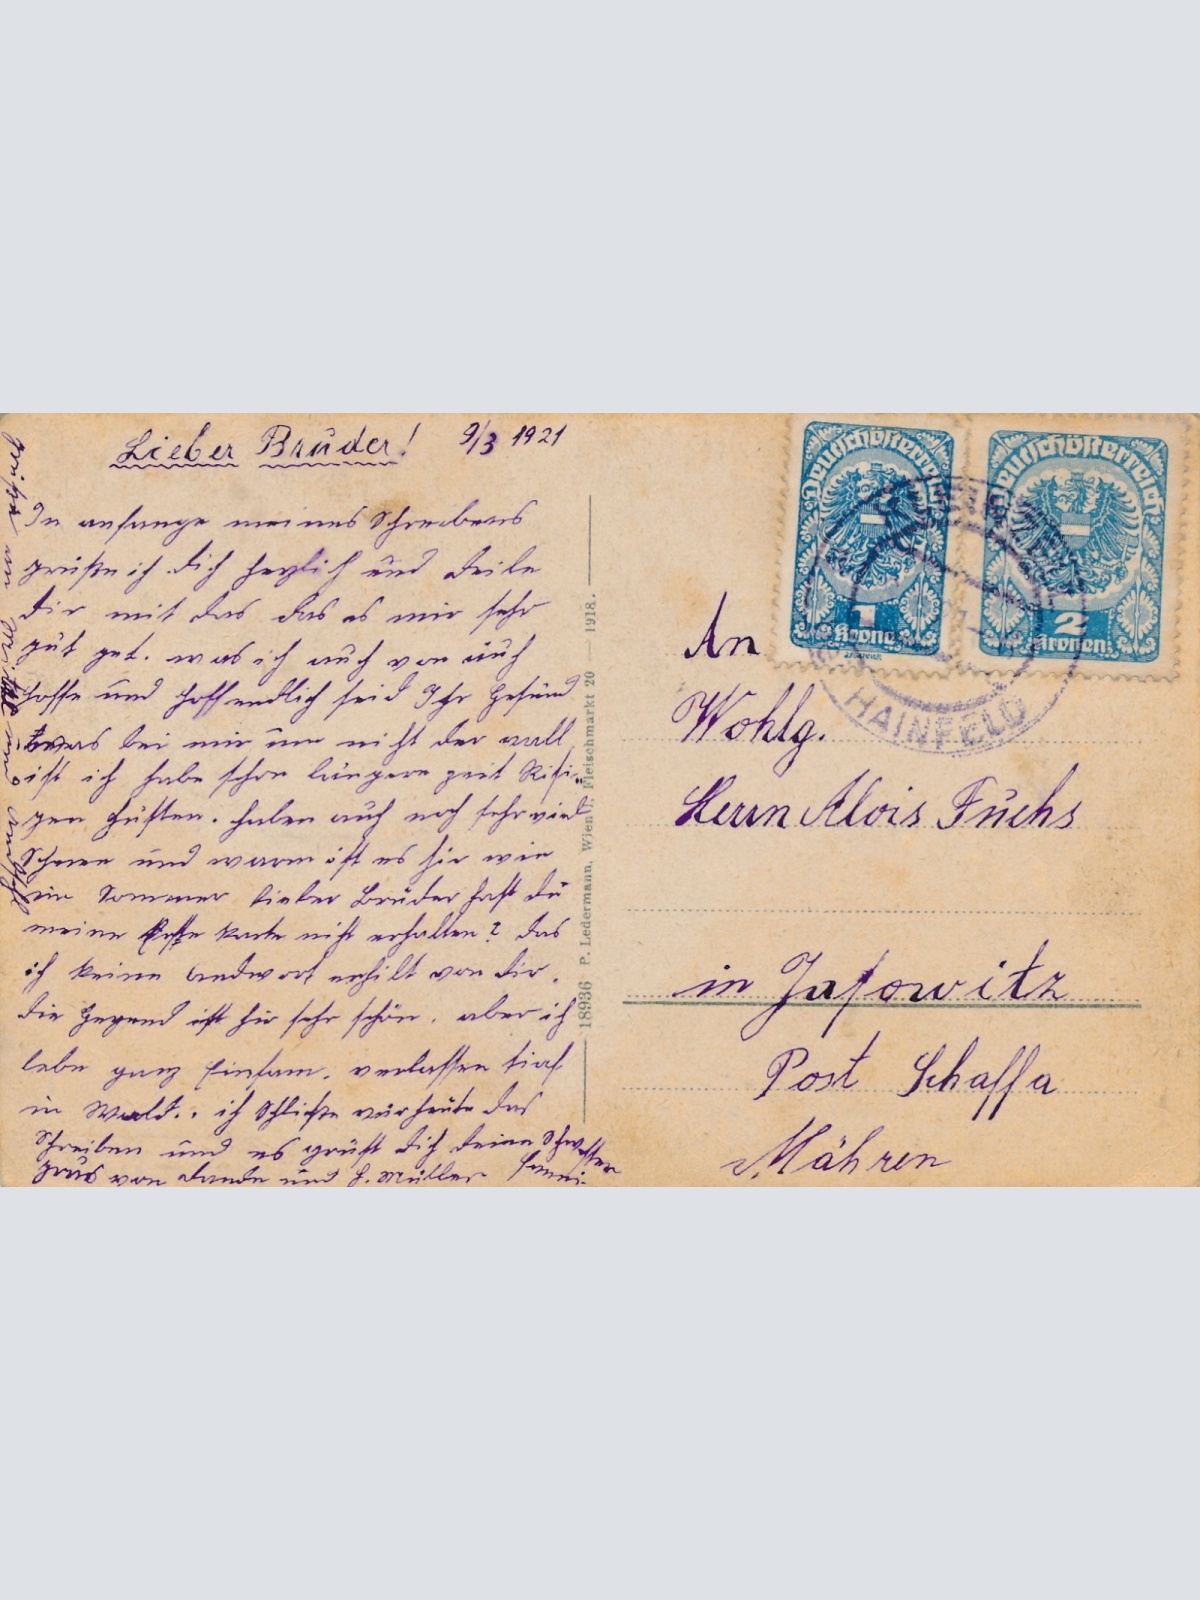 Lieber Bruder! 9/3 1921
In anfange meines Schreibens
grüße ich dich herzlich und deile
dir mit das das es mir sehr
gut get. was ich auch von euch
hoffe und hoffendlich seid Ihr gesund
was bei mir nicht der vall
ist ich habe schon längere zeit Risi-
gen husten. haben auch noch sehr viel
Schnee und warm ist es hir wie
im Sommer lieber Bruder hast du
meine Erste karte nicht erhalten? das
ich keine andwort erhilt von dir.
die gegend ist hir sehr schön. aber ich
lebe ganz Einsam. verlassen tief
in Wald.. ich Schließe vür heute das
Schreiben und es grüßt dich deine Schwester
grus von dande und H. Müller
18936 P. Ledermann, Wien I., Fleischmarkt 20 — 1918.
Deutschösterreich
1
Krone
Deutschösterreich
2
Kronen
HAINFELD
An
Wohlg.
Herrn Alois Fuchs
in Jasowitz
Post Schaffa
Mähren